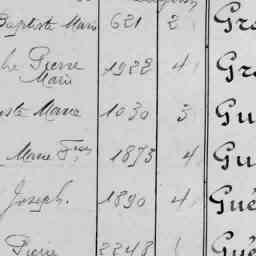 Baptiste Marie 621 2 Gra
Pierre
Marie 1922 4 Gra
Marie 1030 3 Gu
Marie Fran 1873 4 Gu
Joseph. 1890 4 Gué
Pierre 2248 1 Gué